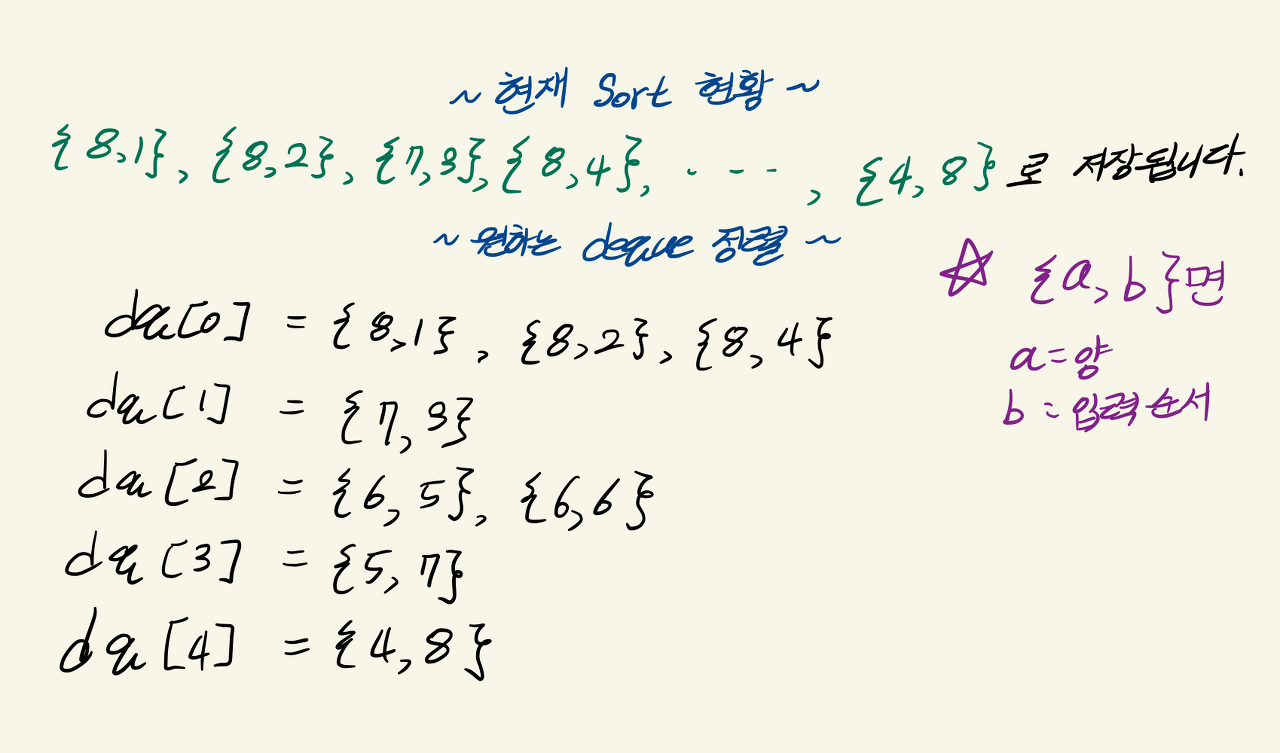 ~ 현재 Sort 현황 ~
{8,1}, {8,2}, {7,3}, {8,4}, ‧ ‧ ‧ ‧, {4,8} 로 저장됩니다.
~ 원하는 deque 정렬 ~
☆ {a,b}면
a=양
b=입력순서
dq[0] = {8,1}, {8,2}, {8,4}
dq[1] = {7,3}
dq[2] = {6,5}, {6,6}
dq[3] = {5,7}
dq[4] = {4,8}